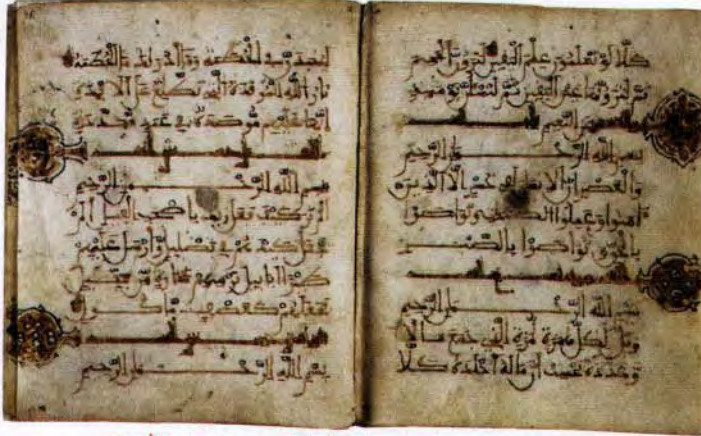 كلا لو تعلمون علم اليقين لترون الجحيم
ثم لترونها عين اليقين ثم لتسئلن يومئذ
النعيم
بسم الله الرحمن الرحيم
والعصر ان الانسن لفي خسر الا الذين
امنوا وعملوا الصلحت وتواصوا
بالحق وتواصوا بالصبر
بسم الله الرحمن الرحيم
ويل لكل همزة لمزة الذي جمع مالا
وعدده يحسب ان ماله اخلده كلا
لينبذن في الحطمة وما ادريك ما الحطمة
نار الله الموقدة التي تطلع على الافدة
انها عليهم موصدة في عمد ممددة
بسم الله الرحمن الرحيم
الم تر كيف فعل ربك باصحب الفيل الم
يجعل كيدهم في تضليل وارسل عليهم
طيرا ابابيل ترميهم بحجارة من سجيل
فجعلهم كعصف ماكول
بسم الله الرحمن الرحيم